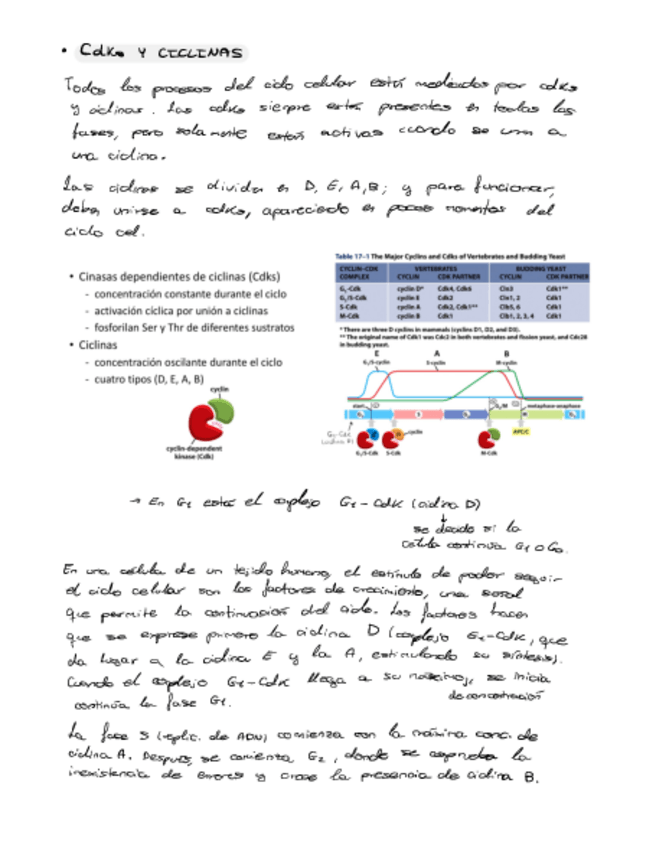 • Cdks Y CICLINAS
Todos los procesos del ciclo celular están mediados por cdks
y ciclinas. Las cdks siempre están presentes en todas las
fases, pero solamente están activas cuando se unen a
una ciclina.
Las ciclinas se dividen en D, E, A, B; y para funcionar,
deben unirse a cdks, apareciendo en pocos momentos del
ciclo cel.
• Cinasas dependientes de ciclinas (Cdks)
- concentración constante durante el ciclo
- activación cíclica por unión a ciclinas
- fosforilan Ser y Thr de diferentes sustratos
• Ciclinas
- concentración oscilante durante el ciclo
- cuatro tipos (D, E, A, B)
cyclin
cyclin-dependent
kinase (Cdk)
Table 17–1 The Major Cyclins and Cdks of Vertebrates and Budding Yeast
CYCLIN–CDK COMPLEX VERTEBRATES BUDDING YEAST
CYCLIN CDK PARTNER CYCLIN CDK PARTNER
G₁-Cdk cyclin D* Cdk4, Cdk6 Cln3 Cdk1**
G₁/S-Cdk cyclin E Cdk2 Cln1, 2 Cdk1
S-Cdk cyclin A Cdk2, Cdk1** Clb5, 6 Cdk1
M-Cdk cyclin B Cdk1 Clb1, 2, 3, 4 Cdk1
* There are three D cyclins in mammals (cyclins D1, D2, and D3).
** The original name of Cdk1 was Cdc2 in both vertebrates and fission yeast, and Cdc28
in budding yeast.
E A B
G₁/S-cyclin S-cyclin M-cyclin
start G₂/M metaphase-anaphase
G₁ S G₂ M G₁
G₁-Cdk
cyclin APC/C
G₁/S-Cdk S-Cdk M-Cdk
→ En G₁ está el complejo G₁ – Cdk (ciclina D)
↓
se decide si la
célula continúa G₁ o G₀.
En una célula de un tejido humano, el estímulo de poder seguir
el ciclo celular son los factores de crecimiento, una señal
que permite la continuación del ciclo. Los factores hacen
que se exprese primero la ciclina D (complejo G₁-Cdk, que
da lugar a la ciclina E y la A, estimulando su síntesis).
Cuando el complejo G₁-Cdk llega a su máximo, se inicia
de concentración
continúa la fase G₁.
La fase S (replic. de ADN) comienza con la máxima conc. de
ciclina A. Después, se comienza G₂, donde se comprueba la
inexistencia de errores y crece la presencia de ciclina B.